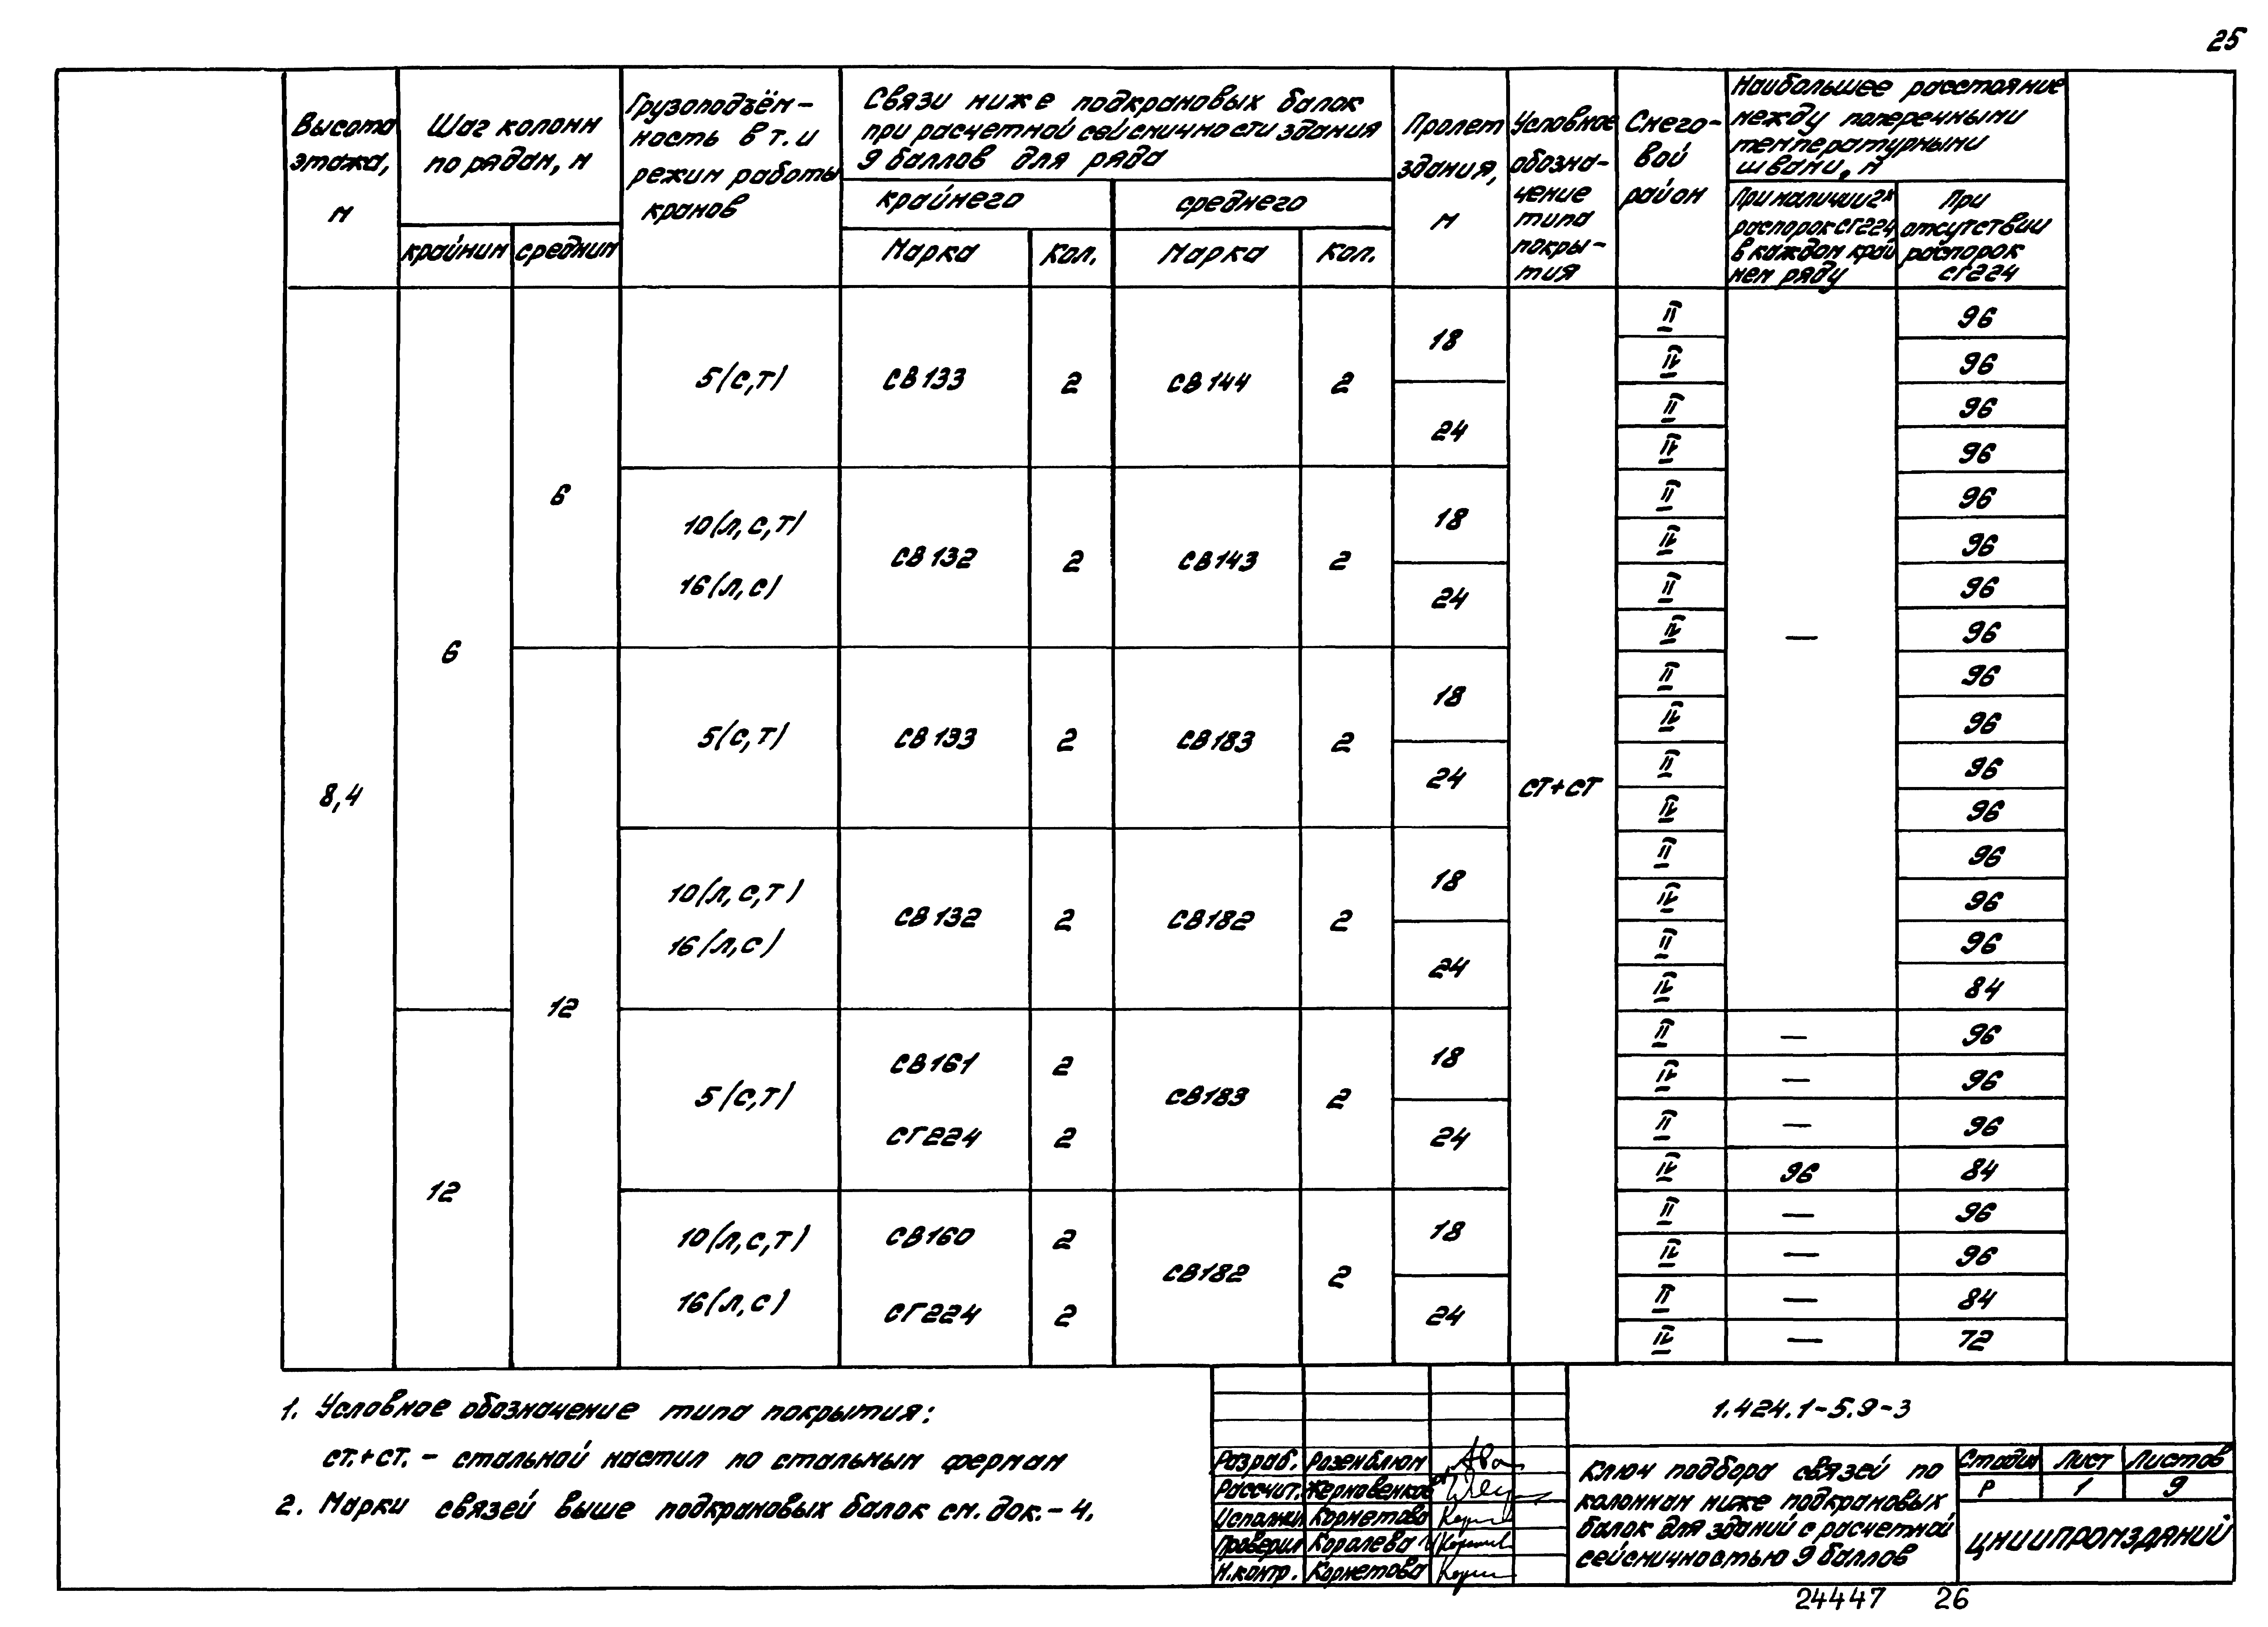 25
Высота этажа, м
Шаг колонн по рядам, м
крайним
средним
Грузоподъём-
ность в т. и
режим работы
кранов
Связи ниже подкрановых балок
при расчетной сейсмичности здания
9 баллов для ряда
крайнего
среднего
Марка
Кол.
Марка
Кол.
Пролет здания, м
Условное
обозна-
чение
типа
покры-
тия
Снего-
вой
район
Наибольшее расстояние
между поперечными
температурными
швами, м
При наличии 2х
распорок СГ224
в каждом край
нем ряду
При
отсутствии
распорок
СГ224
8,4
6
6
5(с,т)
СВ133
2
СВ144
2
18
ст+ст
II
—
96
IV
96
24
II
96
IV
96
10(л,с,т)
16(л,с)
СВ132
2
СВ143
2
18
II
96
IV
96
24
II
96
IV
96
12
5(с,т)
СВ133
2
СВ183
2
18
II
96
IV
96
24
II
96
IV
96
10(л,с,т)
16(л,с)
СВ132
2
СВ182
2
18
II
96
IV
96
24
II
96
IV
84
12
5(с,т)
СВ161
2
СГ224
2
СВ183
2
18
II
—
96
IV
—
96
24
II
—
96
IV
96
84
10(л,с,т)
16(л,с)
СВ160
2
СГ224
2
СВ182
2
18
II
—
96
IV
—
96
24
II
—
84
IV
—
72
1. Условное обозначение типа покрытия:
ст.+ст. - стальной настил по стальным фермам
2. Марки связей выше подкрановых балок см. док. - 4.
Разраб. Розенблюм
Рассчит. Жерновенков
Исполнил Корнетова
Проверил Королева
Н.контр. Корнетова
1.424.1-5.9-3
Ключ подбора связей по
колоннам ниже подкрановых
балок для зданий с расчетной
сейсмичностью 9 баллов
Стадия Лист Листов
Р 1 9
ЦНИИПРОМЗДАНИЙ
24447 26